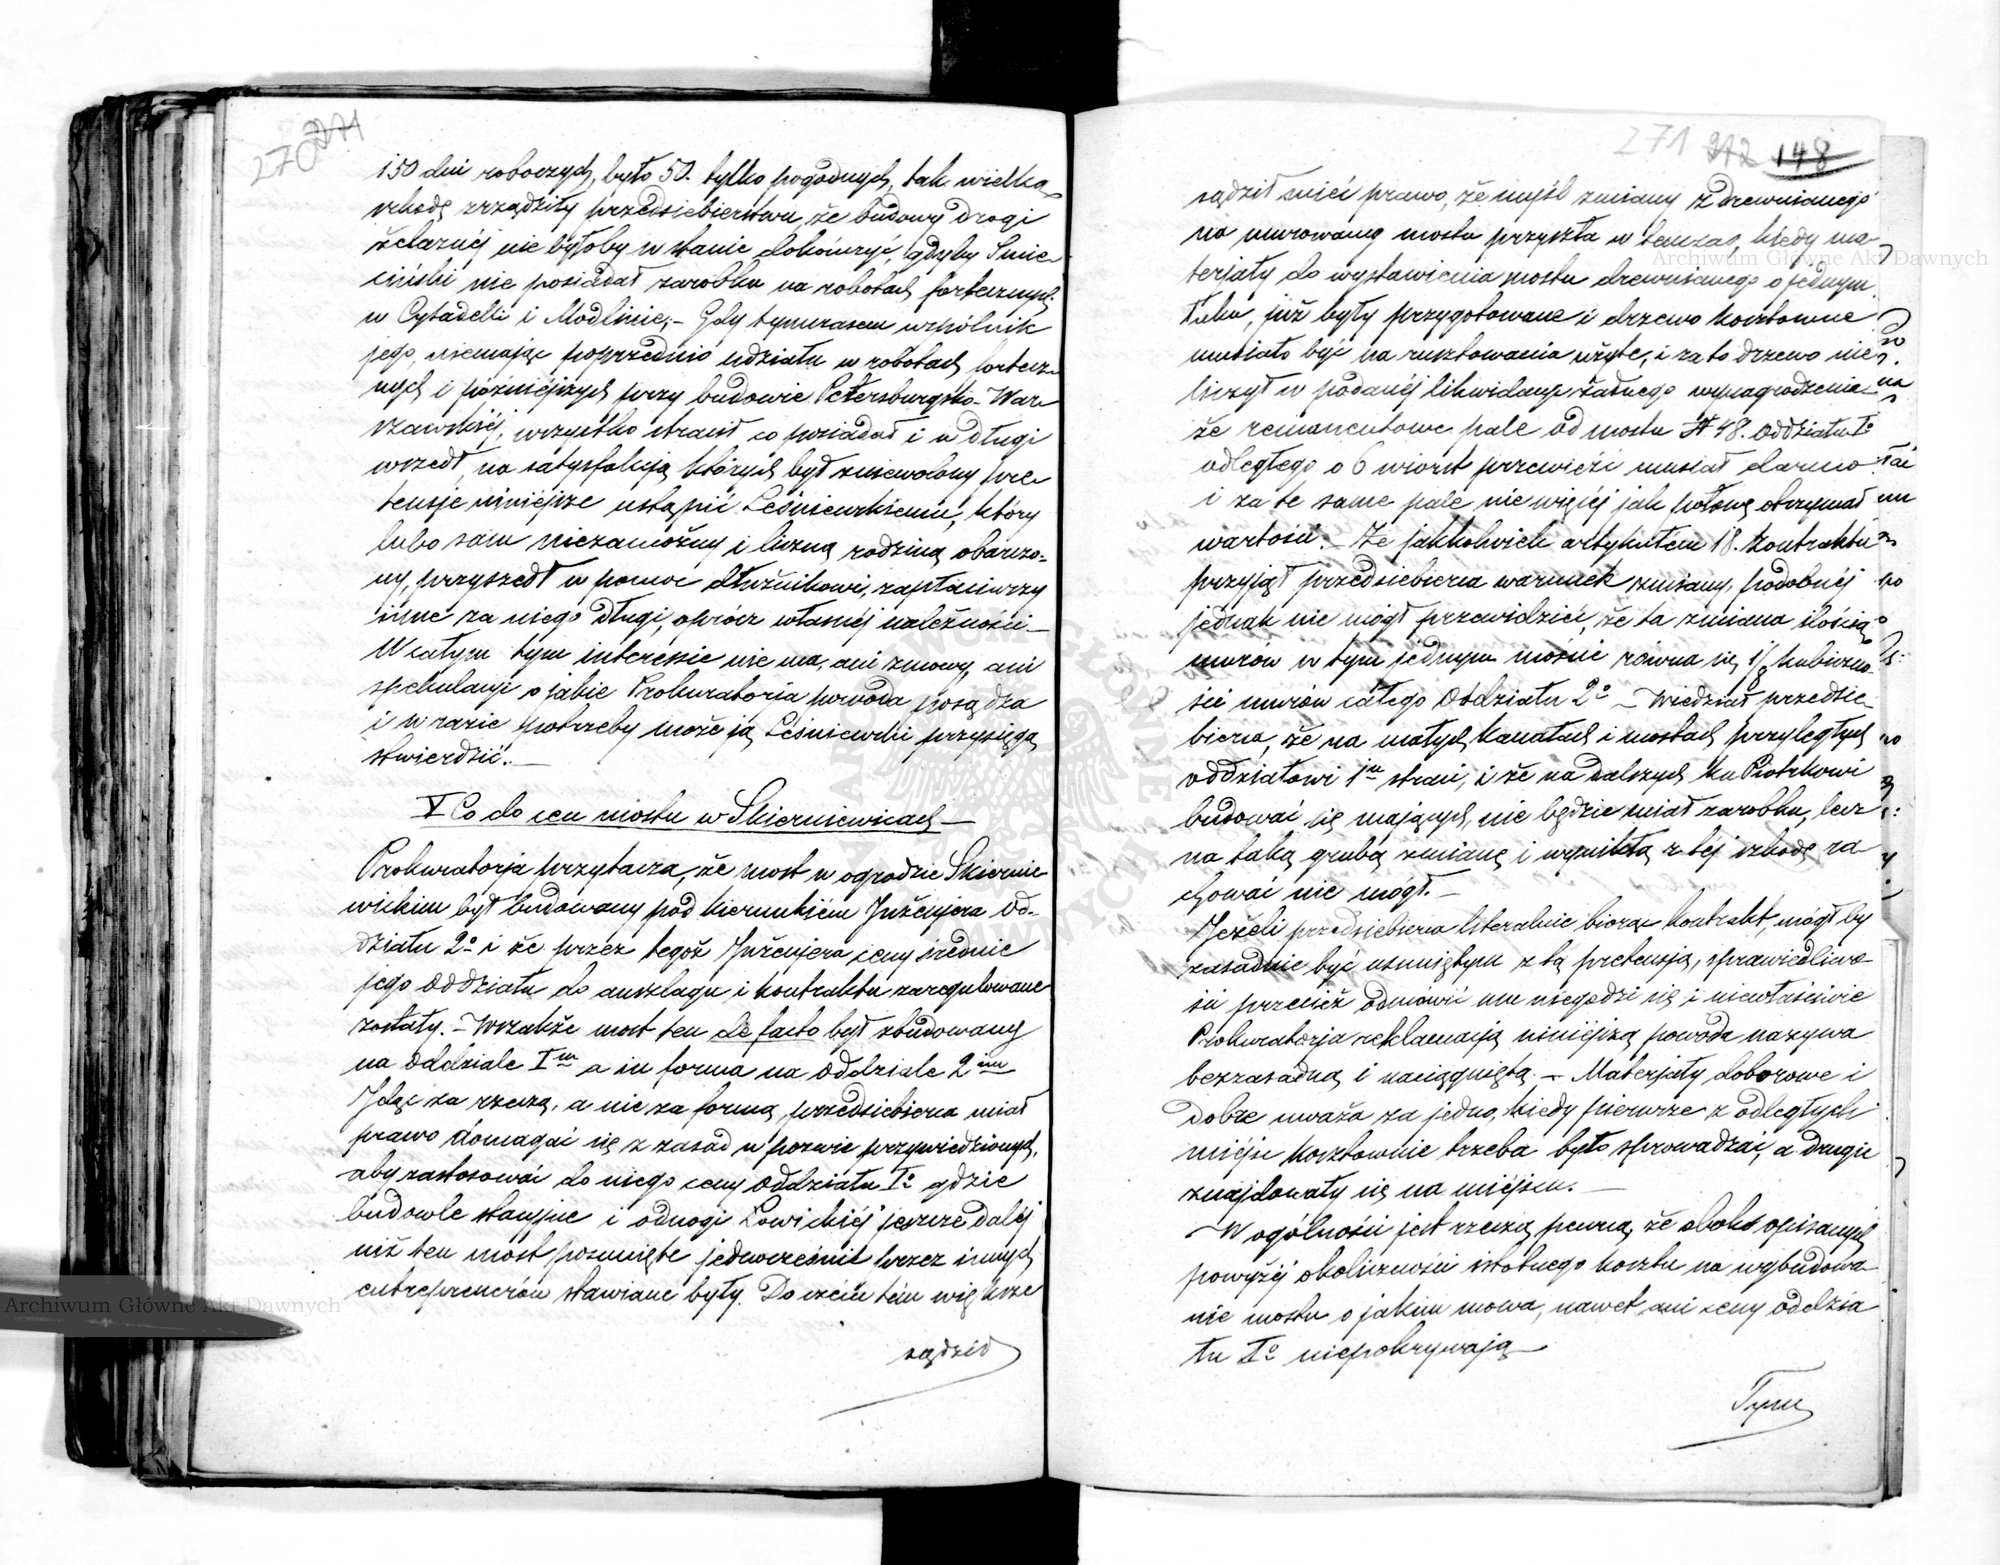 270 271
150 dni roboczych, było 50. tylko pogodnych, tak wielką
szkodę zrządziły przedsiebierstwu, że budowy drogi
żelaznéj nie byłoby w stanie dokończyć, gdyby Smie
ciński nie posiadał zarobku na robotach fortecznych
w Cytadelli i Modlinie;– Gdy tymczasem wspólnik
jego, niemając poprzednio udziału w robotach fortecz
nych i późniejszych przy budowie Petersburgsko-War
szawskiéj, wszystko stracił co posiadał i w długi
wszedł, na satysfakcją których był zniewolony pre
tensje niniejsze ustąpić Leśniewskiemu, który
lubo sam niezamożny i liczną rodziną obarczo=
ny, przyszedł w pomoc dłużnikowi, zapłaciwszy
inne za niego długi, oprócz własnéj należności –
W całym tym interessie nie ma, ani zmowy, ani
spekulacyi o jakie Prokuratorja powoda posądza
i w razie potrzeby może ją Leśniewski przysięgą
stwierdzić. –
V Co do cen mostu w Skierniewicach –
Prokuratorja przytacza, że most w ogrodzie Skiernie
wickim był budowany pod kierunkiém Inżenjera Od-
działu 2º i że przez tegoż Inżenjera ceny średnie
jego Oddziału do anszlagu i kontraktu zaregulowane
zostały. – Wszakże most ten de facto był zbudowany
na Oddziale Iᵐ a in forma na Oddziale 2ⁱᵐ
Idąc za rzeczą, a nie za formą, przedsiebierca miał
prawo domagać się z zasad w pozwie przywiedzionych,
aby zastosować do niego ceny Oddziału Iº gdzie
budowle stacyjne i odnogi Łowickiéj jeszcze daléj
niż ten most posunięte jednocześnie przez innych
entreprenerów stawiane były. Do czém tém większe
sądzić
271 272 148
sądził mieć prawo, że myśl zmiany z drewnianego
na murowany mostu przyszła w tenczas, kiedy ma
terjały do wystawienia mostu drewnianego o jednym
łuku, już były przygotowane i drzewo kosztowne
musiało być na rusztowania użyte, i za to drzewo nie
liczył w podanéj likwidacyi żadnego wynagrodzenia
że remanentowe pale od mostu № 48. Oddziału Iº
odległego o 6 wiorst przewieźć musiał darmo
i za te same pale nie więcéj jak połowę otrzymał
wartości. – Że jakkolwiek artykułem 18. kontraktu
przyjął przedsiebierca warunek zmiany, podobnéj
jednak nie mógł przewidzieć, że ta zmiana ilością
murów w tym jednym moście równa się 1/8 kubiczno
ści murów całego Oddziału 2º – Wiedział przedsie
bierca, że na małych kanałach i mostach przyległych
oddziałowi 1ᵐ straci, i że na dalszych ku Piotrkowi
budować się mających, nie będzie miał zarobku, lecz
na taką grubą zmianę i wynikłą z téj szkodę ra
chować nie mógł. –
Jeżeli przedsiebierca literalnie biorąc kontrakt, mógł by
zasadnie być usuniętym z tą pretensją, sprawiedliwo
ść przecież odmówić mu niegodzi się i niewłaściwie
Prokuratorja reklamacją niniejszą powoda nazywa
bezzasadną i naciągniętą. – Materjały doborowe i
dobre uważa za jedno, kiedy pierwsze z odległych
miéjsc kosztownie trzeba było sprowadzać, a drugie
znajdowały się na miéjscu. –
W ogólności jest rzeczą pewną, że obok opisanych
powyżéj okoliczności istotnego kosztu na wybudowa
nie mostu o jakim mowa, nawet ani ceny oddzia
łu Iº niepokrywają –
Tym